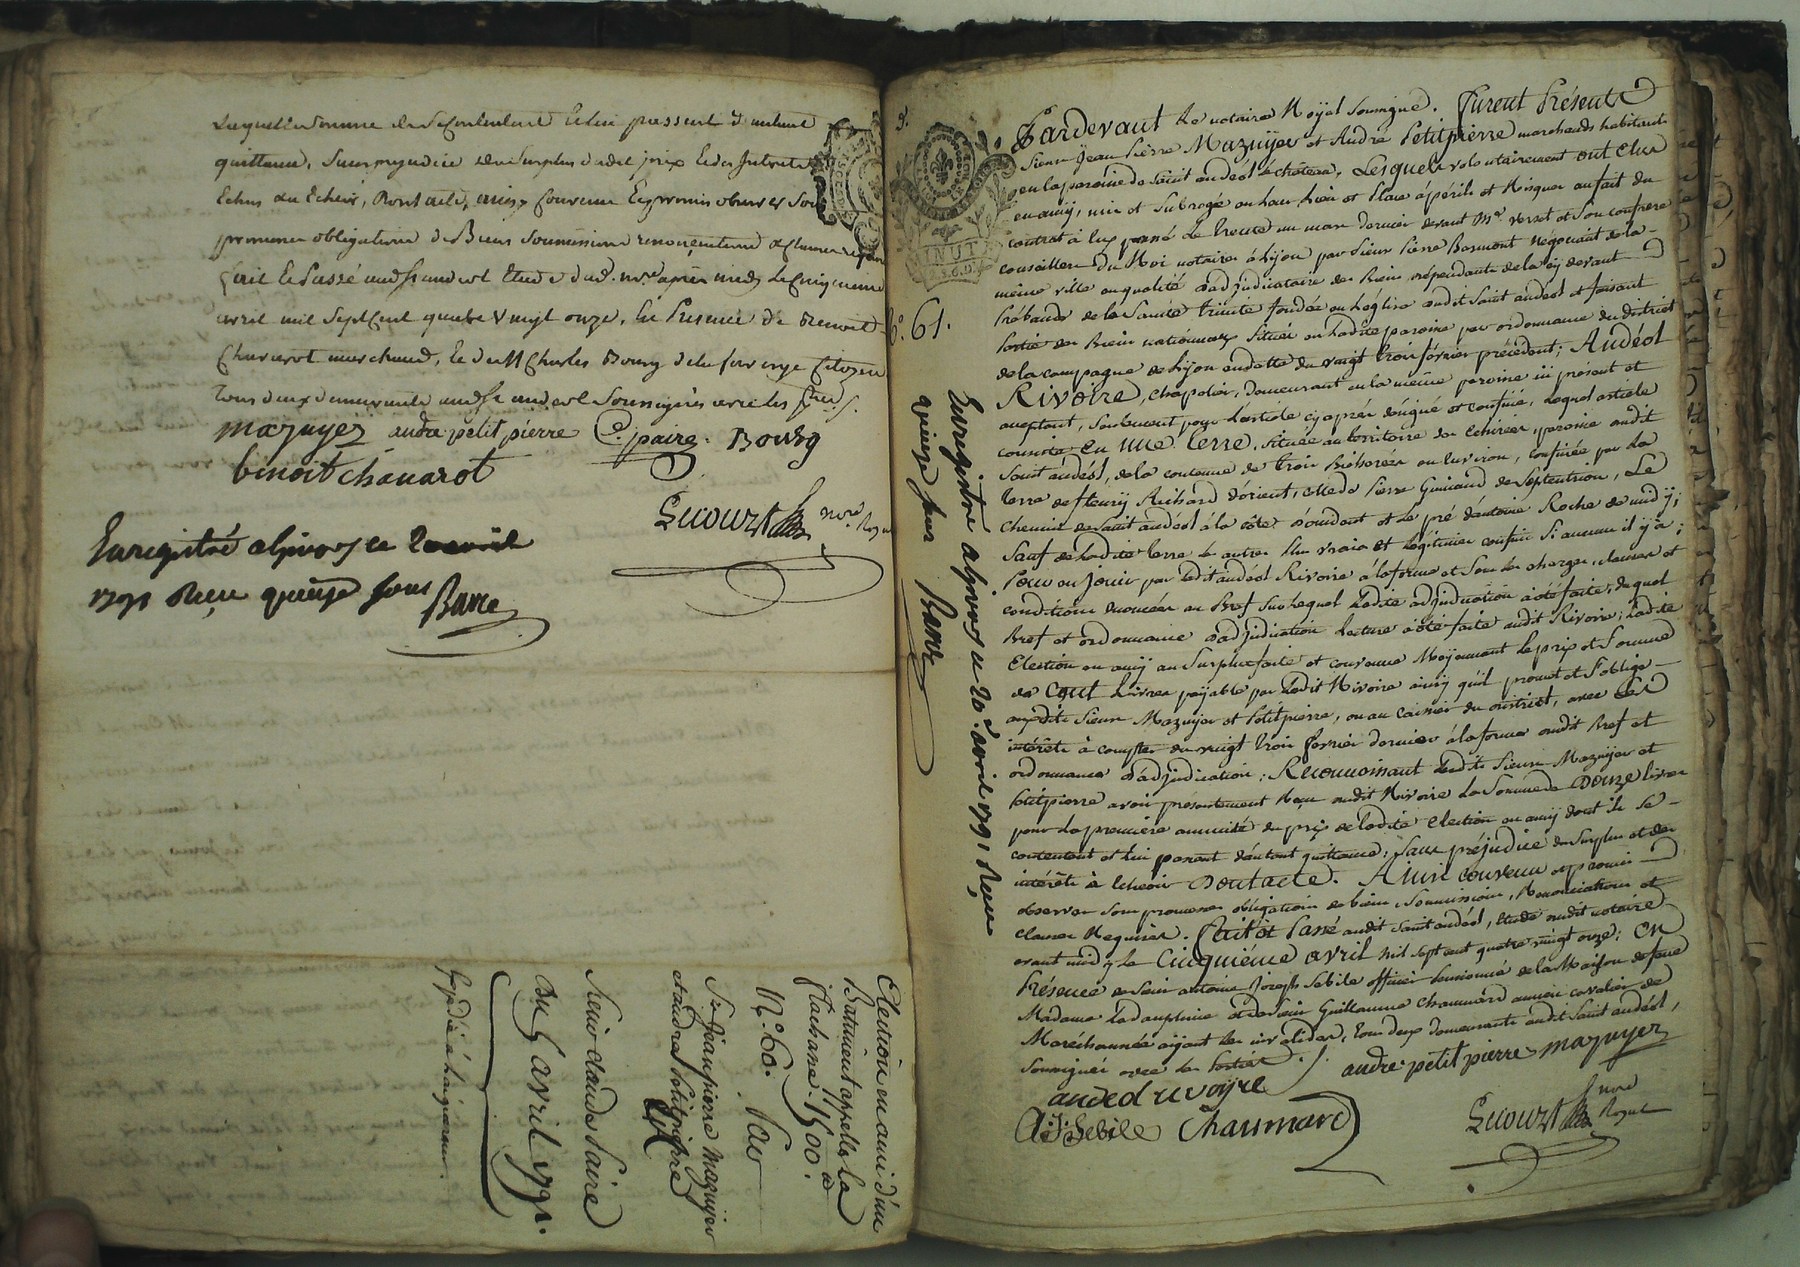 Laquelle somme ils se contentent et lui passent d'autant
quittance, sans préjudice du surplus dudit prix et des intérêts
échus ou à échoir, dont acte, ainsi convenu et promis observer sous
promesse obligations de Biens soumissions renonciations et clauses requises
fait et passé audit St andeol Etude dud. nre. après midy le cinquieme
avril mil sept cent quatre vingt onze, en Presence de Benoit
Chavarot marchand, et de Mr Charles Bourg citoyen
tous deux demeurants aud. St andeol soussignés avec les parties
mazuyer andre petit pierre C. paire. Bourg
benoit chavarot
nre. Royal
Enregistré a givors ce 20 avril
1791 Reçu quinze sous
Barre
Election en ami d'un
Batiment appellé la
flachane. 1500.#
N.° 60. Par
Srs. Jean pierre mazuyer
et andré petitpierre
A
Sieur claude Paire
Du 5 avril 1791.
Expédié à l'acquéreur.
N.° 61.
Enregistré a givors ce 20. avril 1791 Reçu
quinze sous Barre
Pardevant le notaire Royal soussigné. furent Présents
Sieurs Jean Pierre Mazuyer et André Petitpierre marchands habitants
en la paroisse de saint andeol le château, Lesquels volontairement ont elus
en amy, mis et subrogé en leur lieu et Place à périls et risques au fait du
contrat à eux passé le trente un mars dernier devant Me. et son confrere
conseillers du Roi notaires à Lyon par sieur Pierre Bonmont négociant de la
même ville en qualité d'adjudicataire des Biens dépendants de la cy devant
Prébande de la Sainte trinité fondée en l'eglise dudit saint andeol et faisant
partie des Biens nationnaux situés en ladite paroisse par ordonnance du district
de la campagne de Lyon en datte du vingt trois février précédent; Andéol
Rivoire, chapolier, demeurant en la même paroisse ici present et
acceptant, seulement pour l'article cy après désigné et confiné, Lequel article
consiste En une terre, située au territoire des paroisse dudit
saint andéol, de la contenue de trois Bicherées ou environ, confinée par la
terre de fleury Richard d'orient, celle de Pierre Guinand de septentrion, Le
chemin de saint andéol à la côte d'occident et le pré d'antoine Roche de midy;
sauf de ladite terre les autres plus vrais et légitimes confins si aucuns il y a;
Pour en jouir par ledit andéol Rivoire à la forme et sous les charges, clauses et
conditions enoncées au Bref sur lequel ladite adjudication a été faite, duquel
Bref et ordonnance d'adjudication lecture a été faite audit Rivoire; Ladite
Election en amy au surplus faite et convenue Moyennant le prix et somme
de Cent livres payable par ledit Rivoire ainsy qu'il promet et s'oblige
auxdits sieurs Mazuyer et Petitpierre, ou au caissier du district, avec les
intérêts à compter du vingt trois fevrier dernier à la forme dudit Bref et
ordonnance d'adjudication; Reconnoissant lesdits sieurs Mazuyer et
Petitpierre avoir présentement Reçu dudit Rivoire la somme de Douze livres
pour la première annuité du prix de ladite election en amy dont ils se
contentent et lui passent d'autant quittance; Sans préjudice du surplus et des
intérêts à échoir Dont acte. Ainsi convenu et promis
observer sous promesses obligations de biens, soumissions, Renonciations et
clauses Requises. Fait et Passé audit saint andéol, Etude dudit notaire
avant midy le Cinquiéme avril mil sept cent quatre vingt onze; En
Présence de sieur antoine Joseph Sebile officier pensionné de la Maison de feue
Madame la dauphine et de sieur Guillaume Chaumard ancien cavalier de
Maréchaussée ayant les invalides, tous deux demeurants audit saint andéol,
soussignés avec les Parties.
andre petit pierre mazuyer
anded revoyre
A: J: Sebile Chaumard
nre Royal